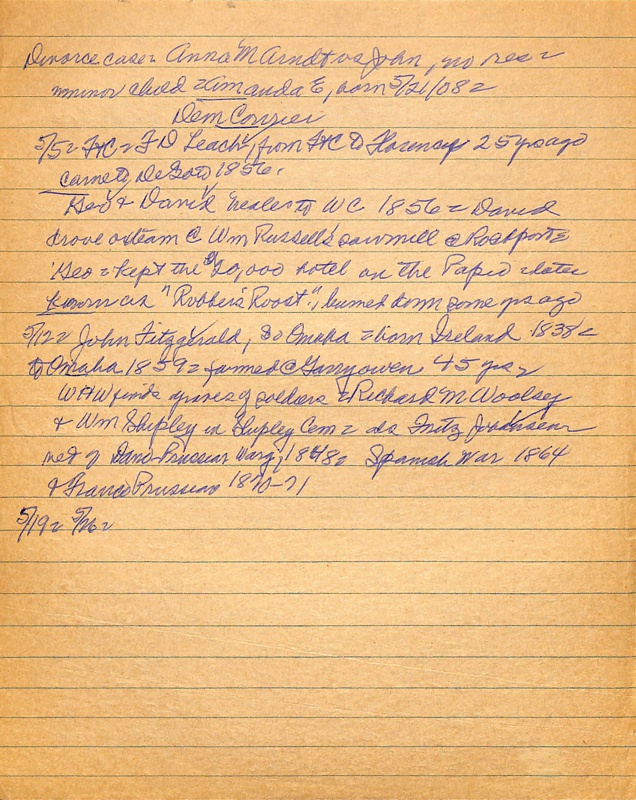 Divorce case = Anna M Arndt vs John, no res =
minor child = Amanda E, born 5/21/08 =
Dem Courier
5/5 = FtC = F D Leach, from FtC to Florence 25 yrs ago
came to DeSoto 1856.
Geo & David Nealer to WC 1856 = David
drove oxteam @ Wm Russell's sawmill @ Rockport =
Geo = kept the $20,000 hotel on the Papio = later
known as "Robber's Roost", burned down some yrs ago
5/12 = John Fitzgerald, So Omaha = born Ireland 1838 =
to Omaha 1859 = farmed @ Garryowen 45 yrs =
WHW finds graves of soldiers = Richard M Woolsey
& Wm Shipley in Shipley Cem = als Fritz
vet of Dano-Prussian War, 1848 = Spanish War 1864
& Franco Prussian 1870-71
5/19 = 5/26 =